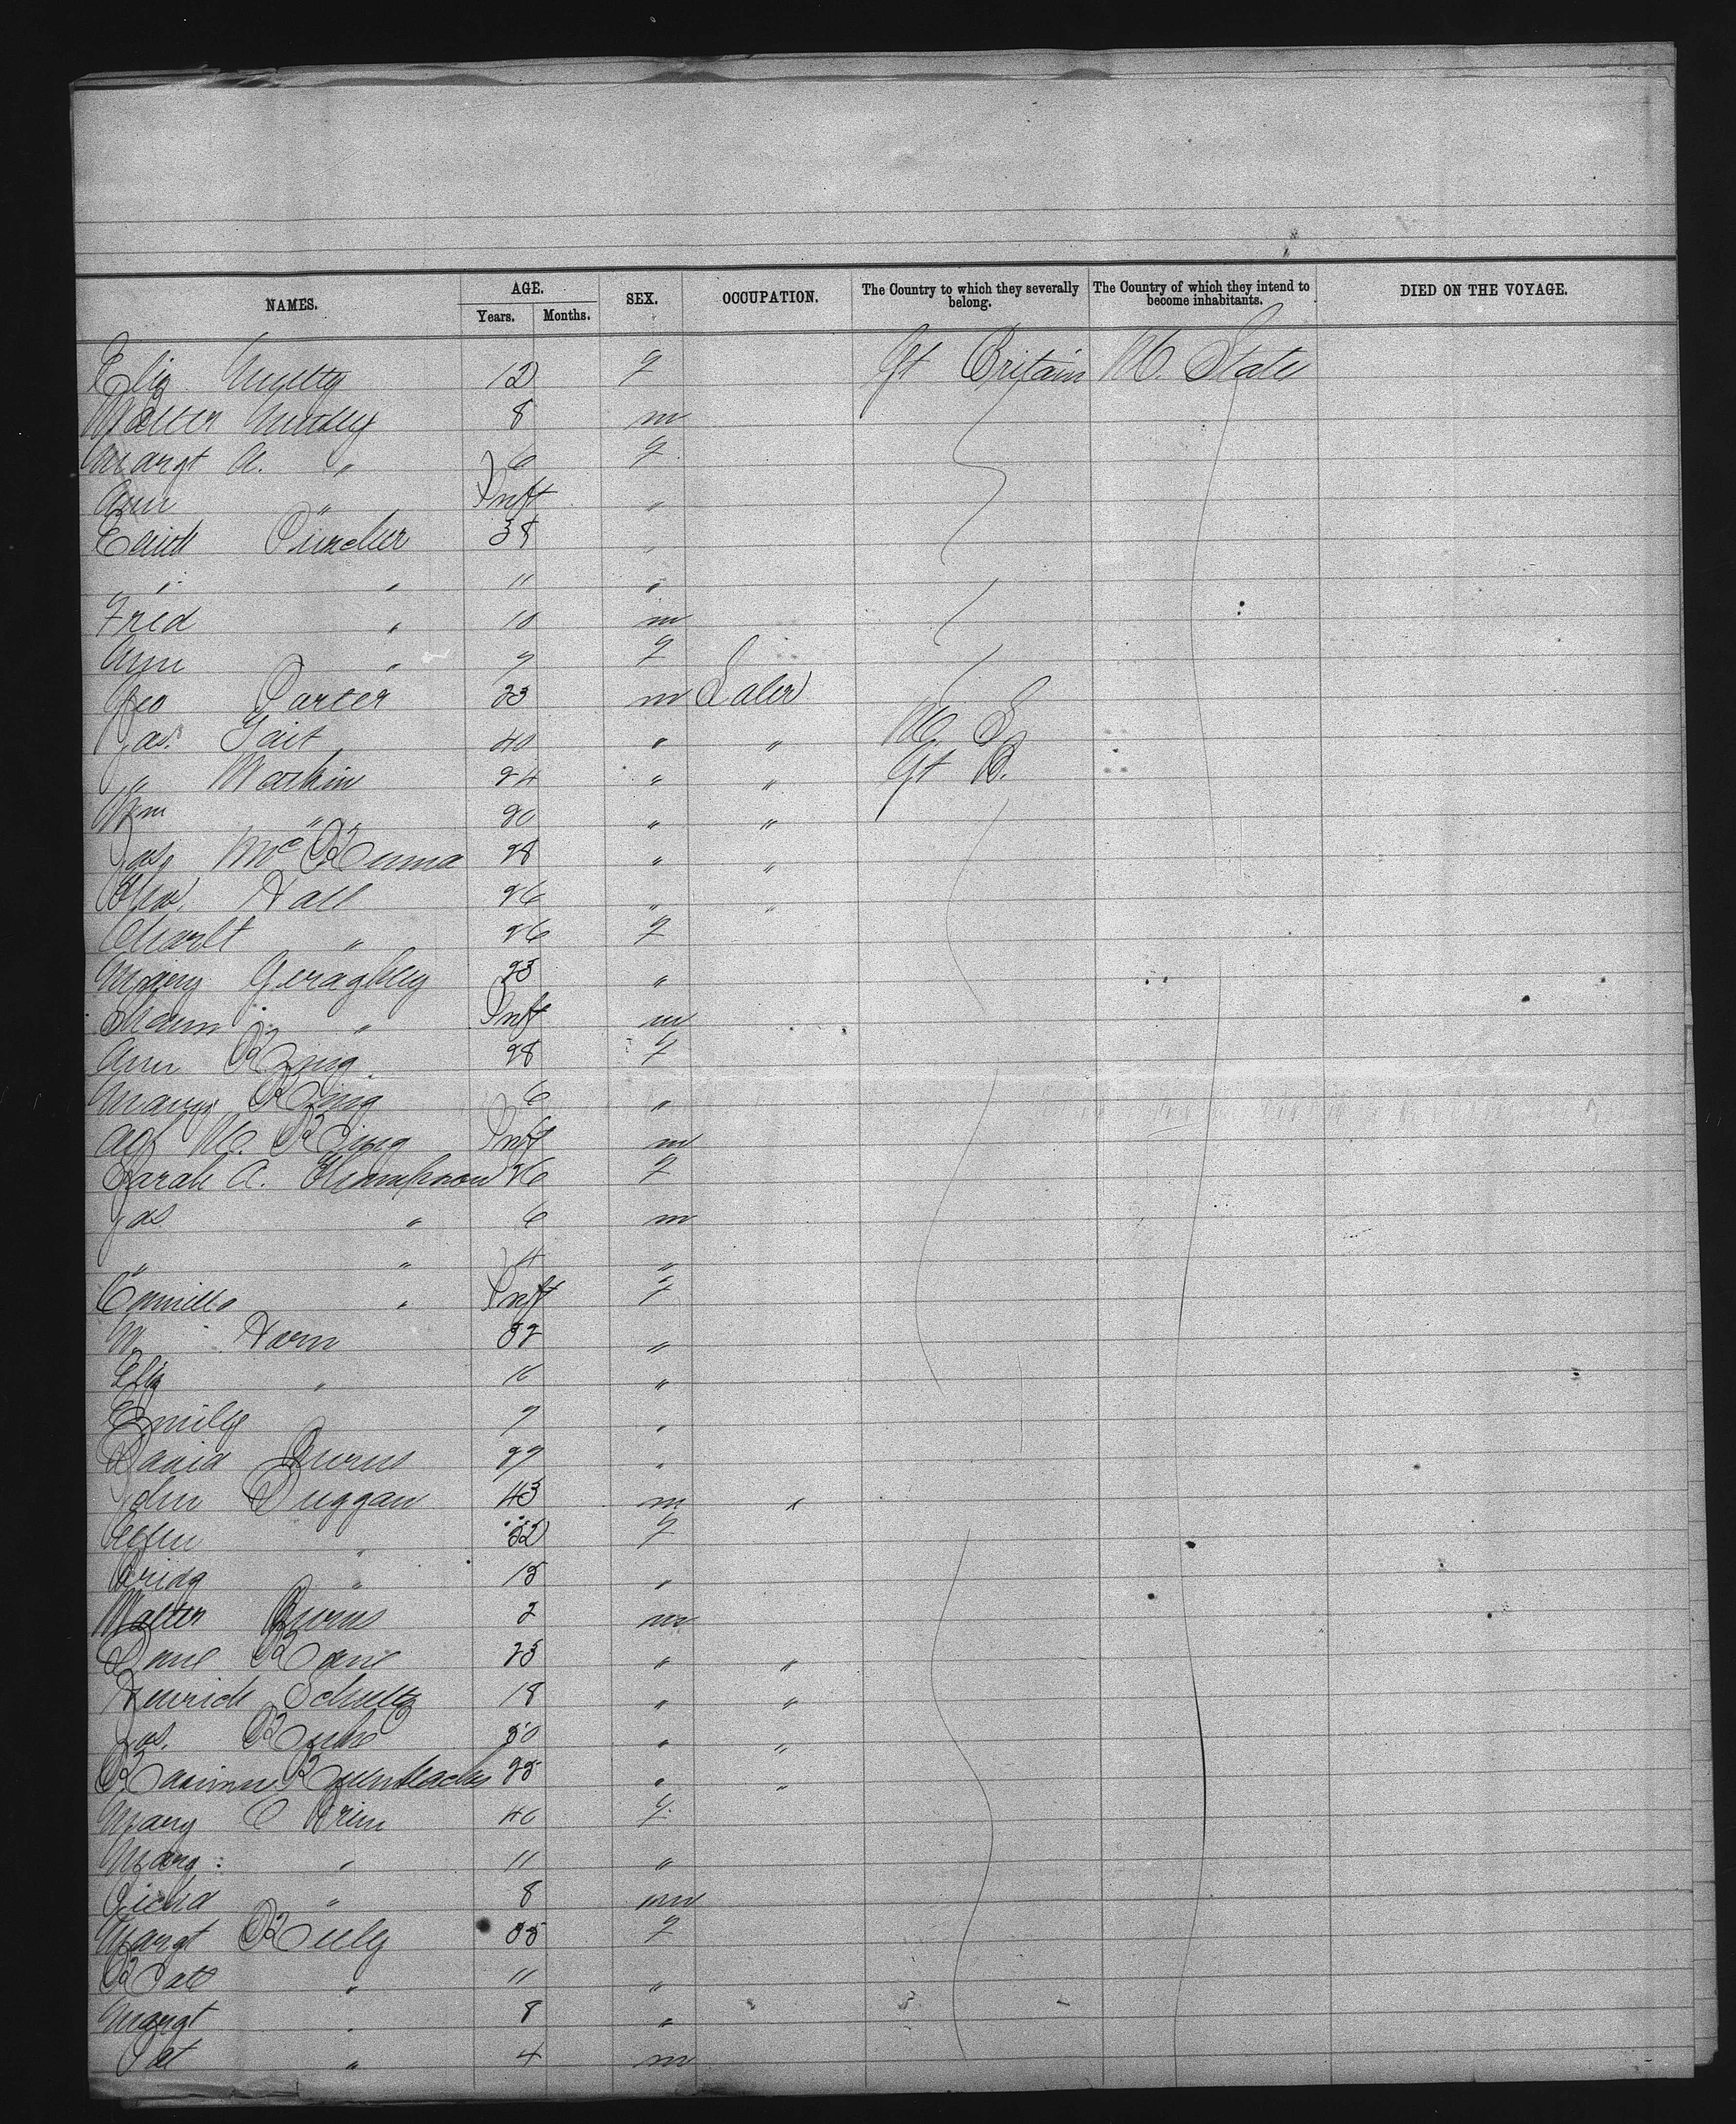 NAMES. AGE. Years. Months. SEX. OCCUPATION. The Country to which they severally belong. The Country of which they intend to become inhabitants. DIED ON THE VOYAGE.
Eliz 12 f Gt Britain U. State
Walter 8 m
Margt A. " 6 f
Ann " Inft "
38 "
" " 11 "
Fred " 10 m
Ann " 9 f
Geo Porter 23 m Labr
Jas. Tait 40 " " U. S.
" Markin 24 " " Gt B.
Wm " 20 " "
Jas. McKenna 28 " "
Hall 26 " "
Charlt " 26 f
Mary Geraghty 23 "
" Inft m
Ann King 28 f
Mary King 6 "
King Inft m
Sarah A. 26 f
Jas. " 6 m
" " 4 "
" Inft f
M. Horn 32 "
Eliz " 11 "
Emily 9 "
David Burns 27 "
John Duggan 43 m "
Ellen " 32 f
Bridg " 15 "
Walter Burns 2 m
Kane 25 " "
Henrich Schultz 18 " "
Jas. 50 " "
25 " "
Mary O Brien 40 f
Mary " 11 "
Richd " 8 m
Margt Kelly 35 f
Kate " 11 "
Margt " 8 "
Pat " 4 m